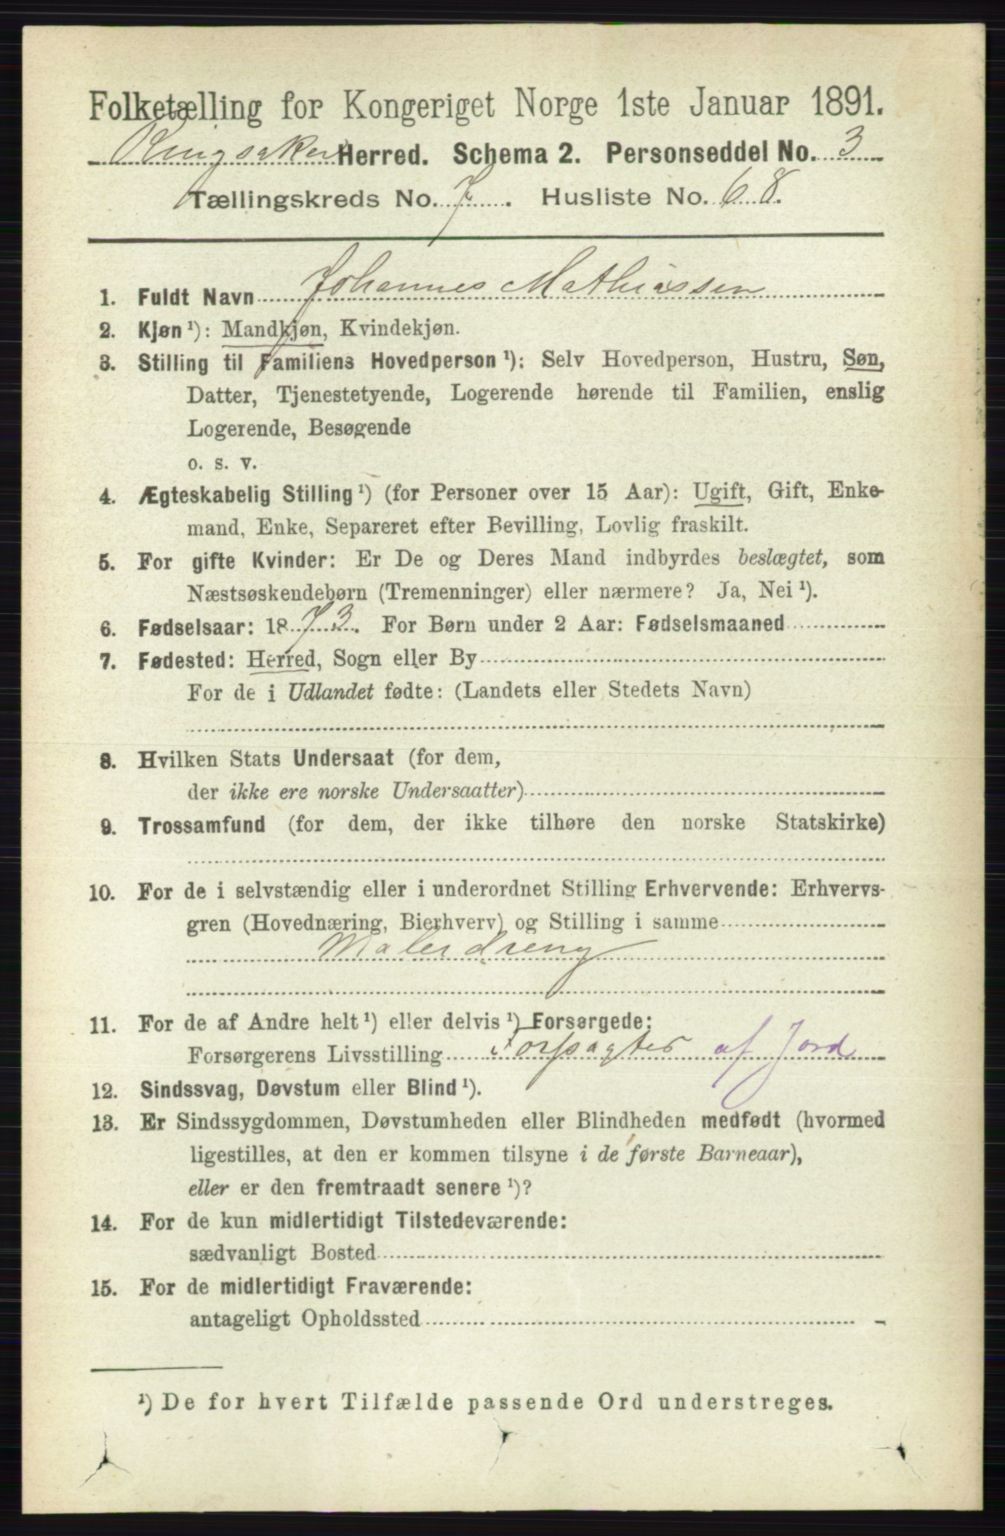 Folketælling for Kongeriget Norge 1ste Januar 1891.
Ringsaker Herred. Schema 2. Personseddel No. 3
Tællingskreds No. 7. Husliste No. 68.
1. Fuldt Navn Johannes Mathiassen
2. Kjøn ¹): Mandkjøn, Kvindekjøn.
3. Stilling til Familiens Hovedperson ¹): Selv Hovedperson, Hustru, Søn,
Datter, Tjenestetyende, Logerende hørende til Familien, enslig
Logerende, Besøgende
o. s. v.
4. Ægteskabelig Stilling ¹) (for Personer over 15 Aar): Ugift, Gift, Enke-
mand, Enke, Separeret efter Bevilling, Lovlig fraskilt.
5. For gifte Kvinder: Er De og Deres Mand indbyrdes beslægtet, som
Næstsøskendebørn (Tremenninger) eller nærmere? Ja, Nei ¹).
6. Fødselsaar: 1873. For Børn under 2 Aar: Fødselsmaaned
7. Fødested: Herred, Sogn eller By
For de i Udlandet fødte: (Landets eller Stedets Navn)
8. Hvilken Stats Undersaat (for dem,
der ikke ere norske Undersaatter)
9. Trossamfund (for dem, der ikke tilhøre den norske Statskirke)
10. For de i selvstændig eller i underordnet Stilling Erhvervende: Erhvervs-
gren (Hovednæring, Bierhverv) og Stilling i samme
Malerdreng
11. For de af Andre helt ¹) eller delvis ¹) Forsørgede:
Forsørgerens Livsstilling Forpagter af Jord
12. Sindssvag, Døvstum eller Blind ¹).
13. Er Sindssygdommen, Døvstumheden eller Blindheden medfødt (hvormed
ligestilles, at den er kommen tilsyne i de første Barneaar),
eller er den fremtraadt senere ¹)?
14. For de kun midlertidigt Tilstedeværende:
sædvanligt Bosted
15. For de midlertidigt Fraværende:
antageligt Opholdssted
¹) De for hvert Tilfælde passende Ord understreges.